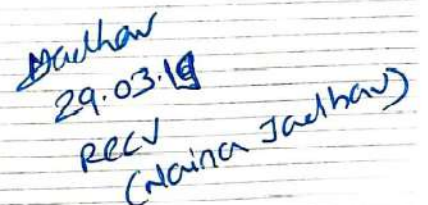 Jadhav
29.03.19
Recv
(Naina Jadhav)